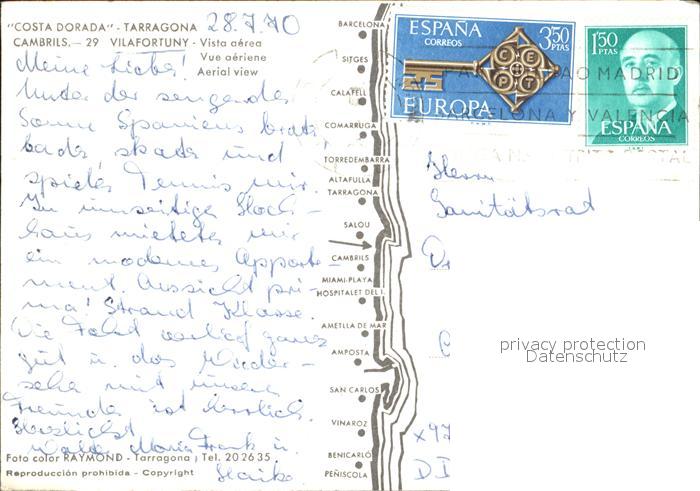 "COSTA DORADA" - TARRAGONA
CAMBRILS. - 29 VILAFORTUNY - Vista aérea
Vue aériene
Aerial view
28.7.70
Meine Liebe!
Unter der sengenden
Sonne Spaniens
und
Tennis wir.
Im umseitigen Hoch-
haus mieteten wir
ein modernes Apparte-
ment. Aussicht pri-
ma! Strand Klasse.
Die Fahrt verlief ganz
gut u. das Wieder-
sehen mit unseren
Freunden ist herrlich.
Herzlichst
Maria Frank u.
Heike
Foto color RAYMOND - Tarragona - Tel. 202635
Reproducción prohibida - Copyright
BARCELONA
SITGES
CALAFELL
COMARRUGA
TORREDEMBARRA
ALTAFULLA
TARRAGONA
SALOU
CAMBRILS
MIAMI-PLAYA
HOSPITALET DEL I.
AMETLLA DE MAR
AMPOSTA
SAN CARLOS
VINAROZ
BENICARLÓ
PEÑISCOLA
ESPAÑA
CORREOS
3,50
PTAS
CEPT
EUROPA
1'50
PTAS
ESPAÑA
CORREOS
MADRID
BARCELONA Y VALENCIA
Herrn
Sanitätsrat
privacy protection
Datenschutz